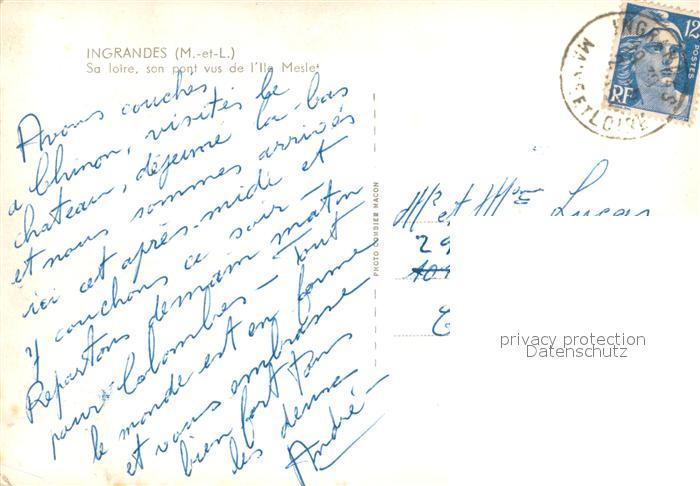 INGRANDES (M.-et-L.)
Sa loire, son pont vus de l'Ile Meslet
Avons couchés
a Chinon, visités le
chateau, déjeuné la-bas
et nous sommes arrivés
ici cet après-midi et
y couchons ce soir -
Repartons demain matin
pour Colombres - Tout
le monde est en forme
et vous embrasse
bien fort tous
les deux
André -
PHOTO COMBIER MACON
12F
POSTES
RF
INGRANDES
MAINE ET LOIRE
Mr et Mme Lucas
29
privacy protection
Datenschutz